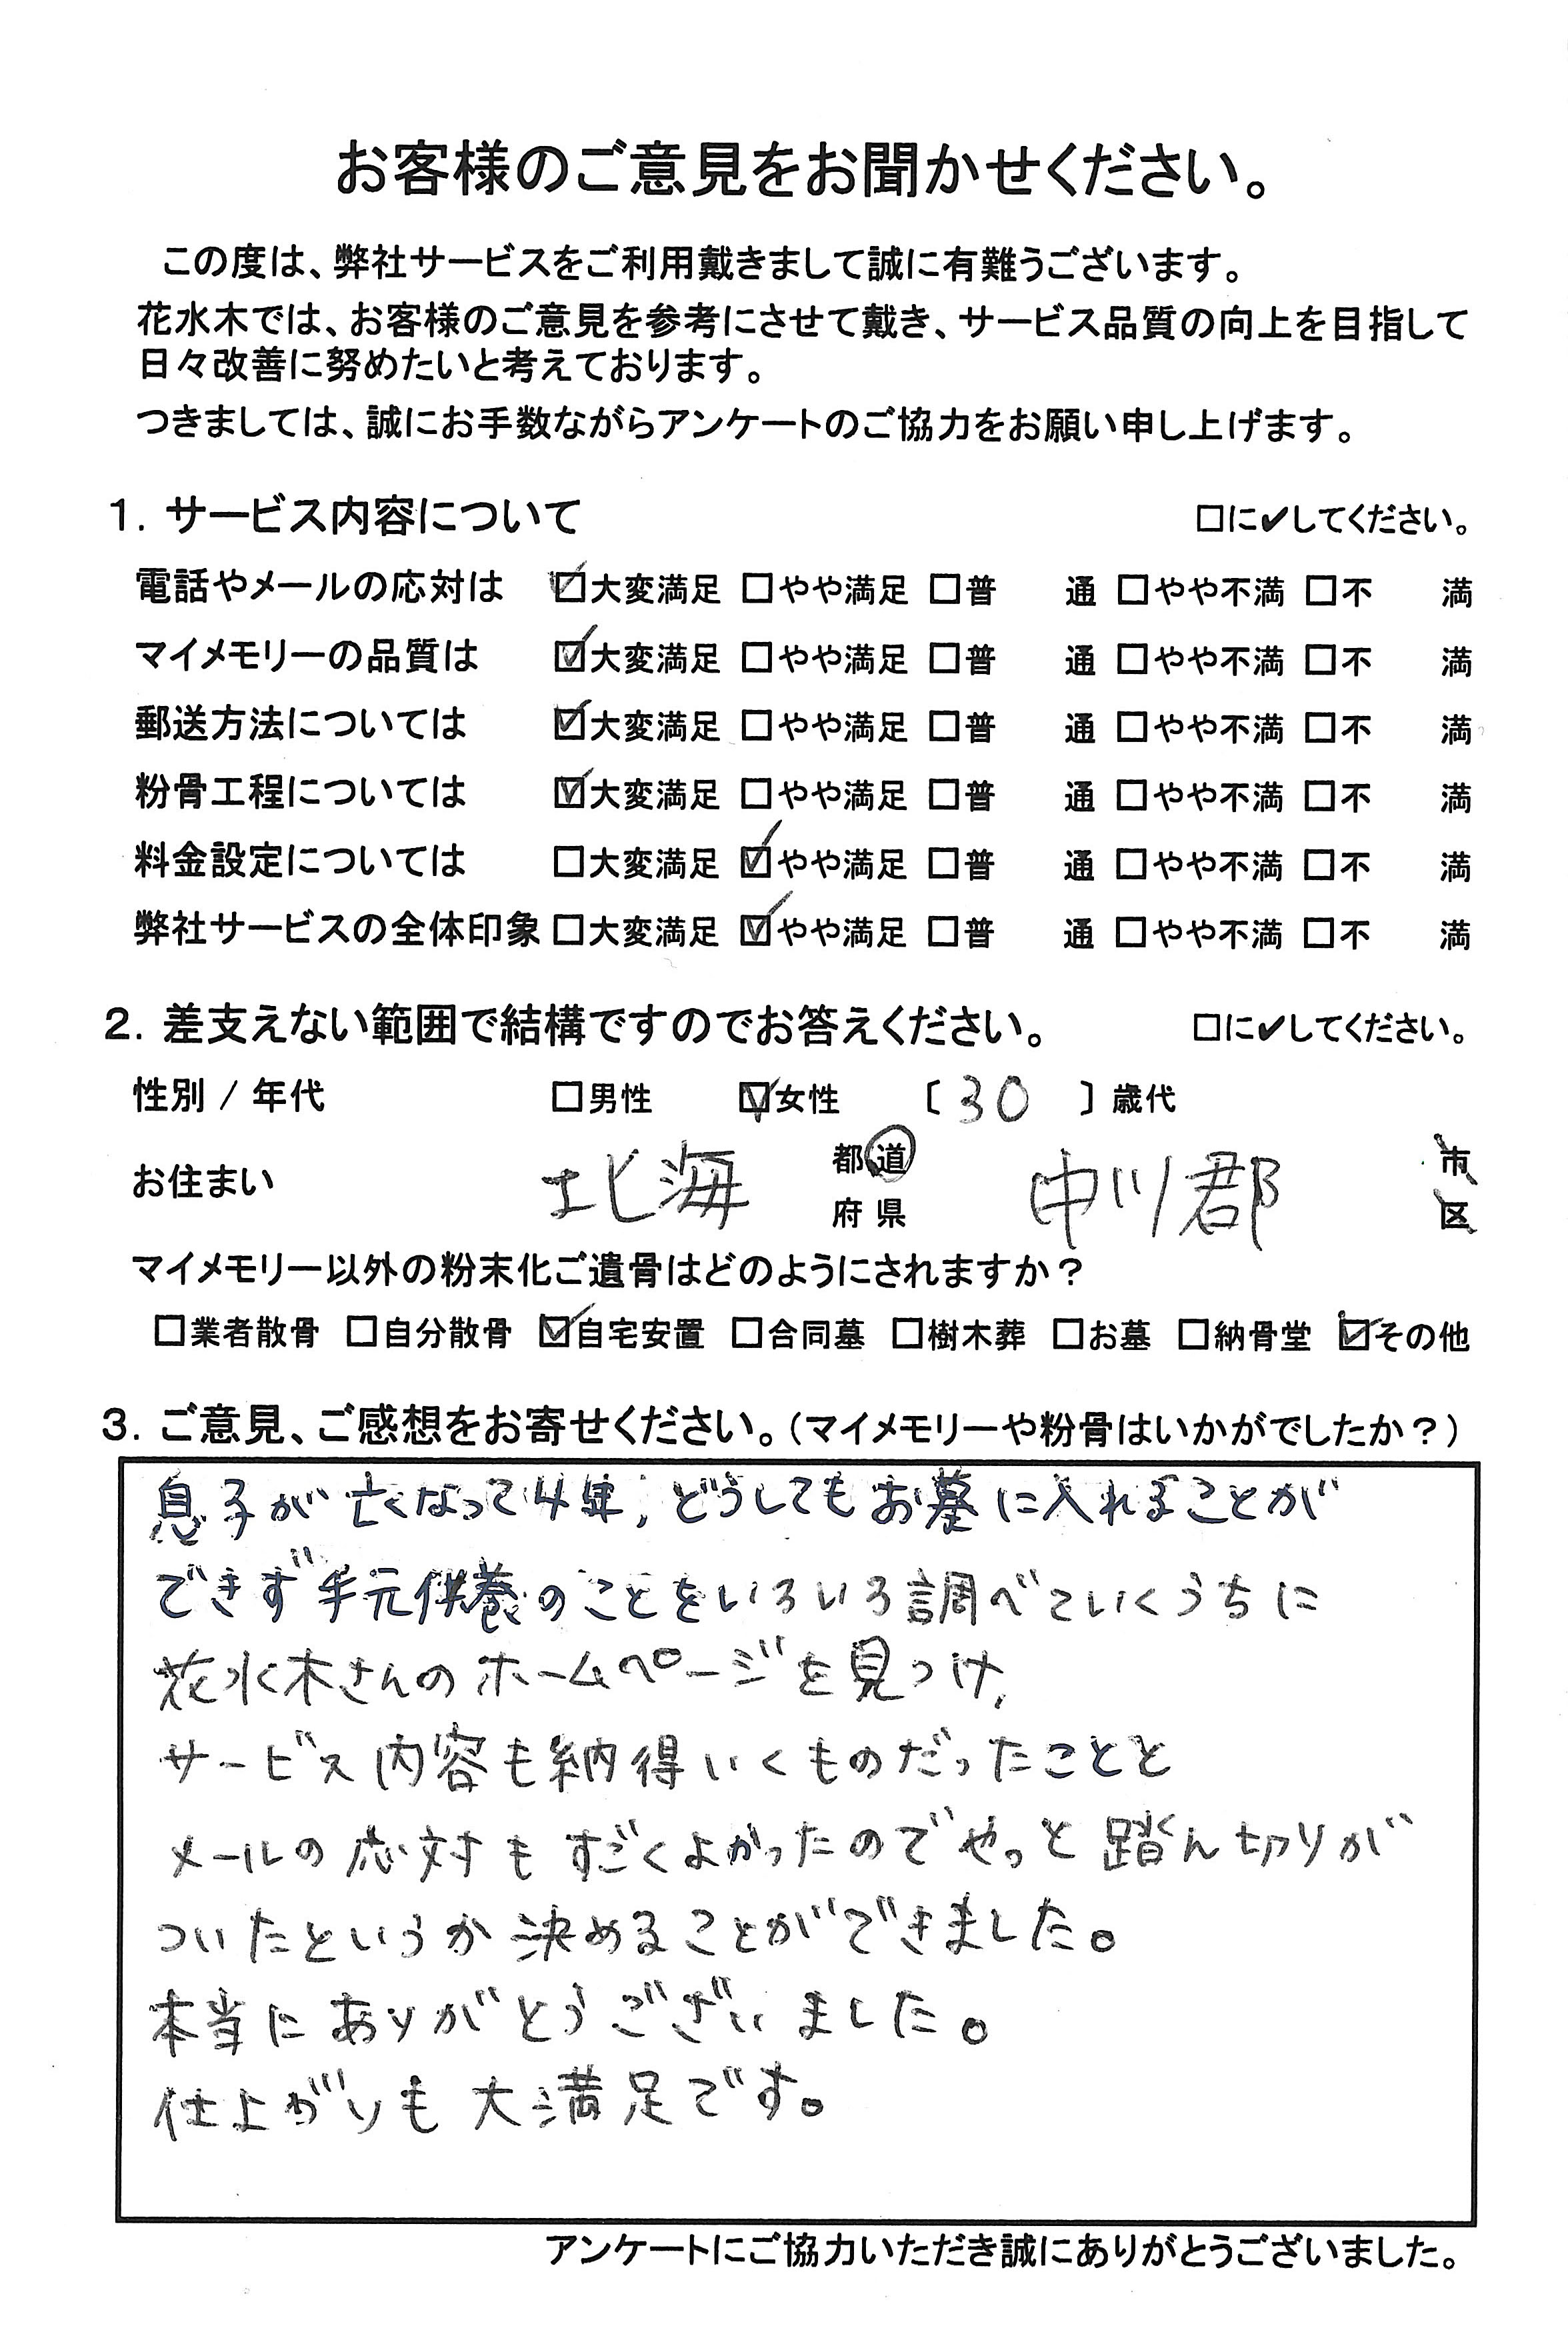 お客様のご意見をお聞かせください。
この度は、弊社サービスをご利用戴きまして誠に有難うございます。
花水木では、お客様のご意見を参考にさせて戴き、サービス品質の向上を目指して
日々改善に努めたいと考えております。
つきましては、誠にお手数ながらアンケートのご協力をお願い申し上げます。
1. サービス内容について □に✔してください。
電話やメールの応対は ☑大変満足 □やや満足 □普 通 □やや不満 □不 満
マイメモリーの品質は ☑大変満足 □やや満足 □普 通 □やや不満 □不 満
郵送方法については ☑大変満足 □やや満足 □普 通 □やや不満 □不 満
粉骨工程については ☑大変満足 □やや満足 □普 通 □やや不満 □不 満
料金設定については □大変満足 ☑やや満足 □普 通 □やや不満 □不 満
弊社サービスの全体印象 □大変満足 ☑やや満足 □普 通 □やや不満 □不 満
2. 差支えない範囲で結構ですのでお答えください。 □に✔してください。
性別 / 年代 □男性 ☑女性 〔 30 〕歳代
お住まい 北海 都道府県 中川郡 市区
マイメモリー以外の粉末化ご遺骨はどのようにされますか？
□業者散骨 □自分散骨 ☑自宅安置 □合同墓 □樹木葬 □お墓 □納骨堂 ☑その他
3. ご意見、ご感想をお寄せください。（マイメモリーや粉骨はいかがでしたか？）
息子が亡くなって4年、どうしてもお墓に入れることが
できず手元供養のことをいろいろ調べていくうちに
花水木さんのホームページを見つけ、
サービス内容も納得いくものだったことと
メールの応対もすごくよかったのでやっと踏ん切りが
ついたというか決めることができました。
本当にありがとうございました。
仕上がりも大満足です。
アンケートにご協力いただき誠にありがとうございました。